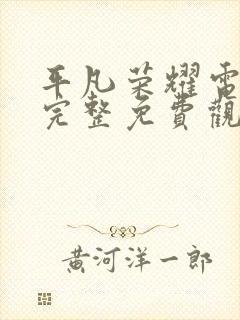 平凡荣耀電
完整免費觀
黃河洋一郎